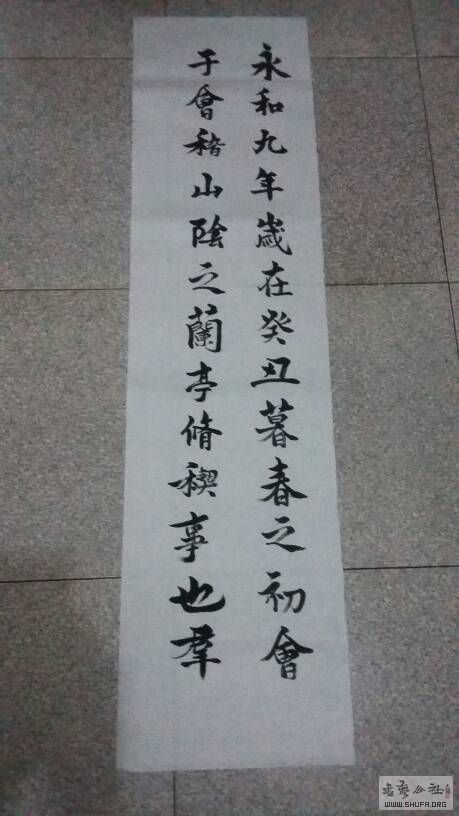 永和九年歲在癸丑暮春之初會
于會稽山陰之蘭亭脩稧事也羣
WWW.SHUFA.ORG